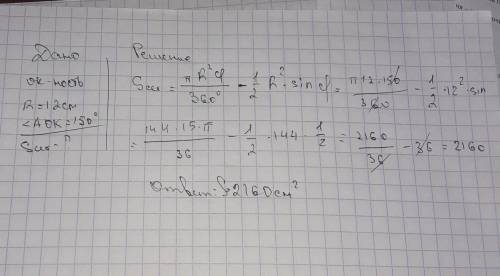 Дано
Решение
ок-ность
R=12см
∠AOK=150°
Sсег-?
Sсег = πR²φ/360° - 1/2 R²·sinφ = π12·150/360 - 1/2·12²·sin
= 144·15·π/36 - 1/2·144·1/2 = 2160/36 - 36 = 2160
Ответ: S 2160см²